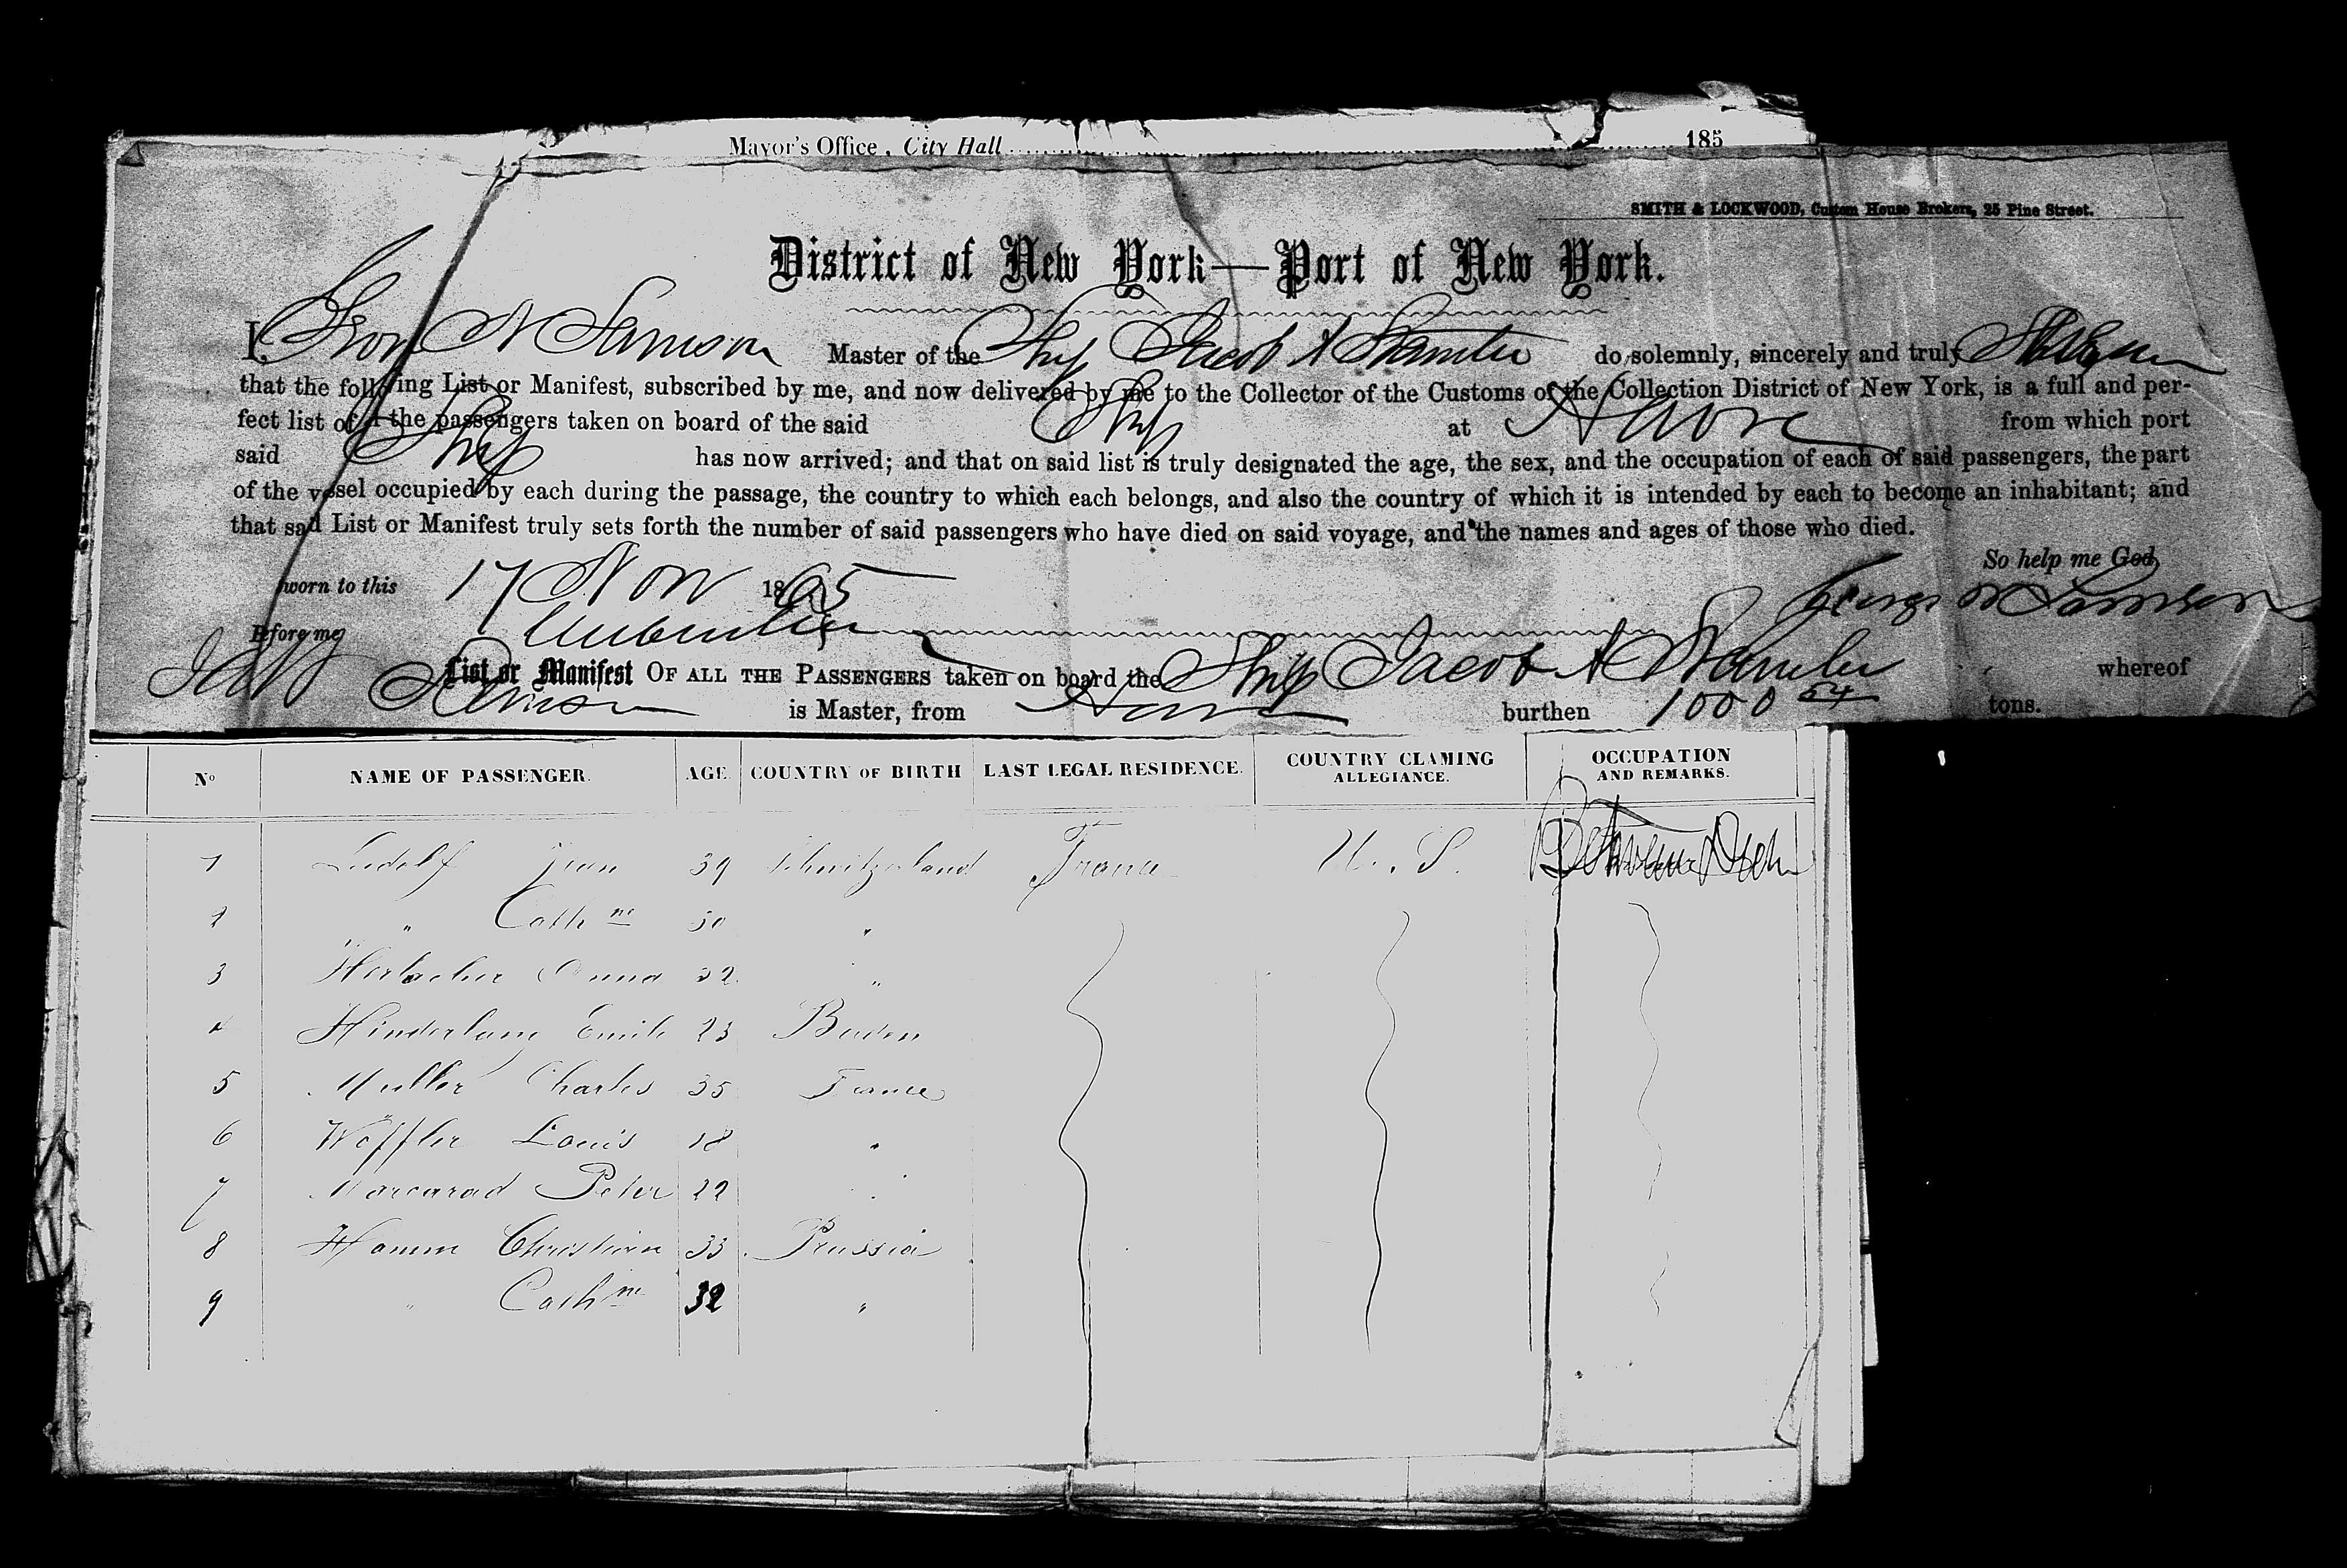 Mayor's Office, City Hall 185
SMITH & LOCKWOOD, Custom House Brokers, 25 Pine Street.
District of New York—Port of New York.
I, Geo W Samson Master of the Ship Jacob A Stamler do solemnly, sincerely and truly Swear
that the following List or Manifest, subscribed by me, and now delivered by me to the Collector of the Customs of the Collection District of New York, is a full and per-
fect list of all the passengers taken on board of the said Ship at Havre from which port
said Ship has now arrived; and that on said list is truly designated the age, the sex, and the occupation of each of said passengers, the part
of the vessel occupied by each during the passage, the country to which each belongs, and also the country of which it is intended by each to become an inhabitant; and
that said List or Manifest truly sets forth the number of said passengers who have died on said voyage, and the names and ages of those who died.
So help me God
Sworn to this 17 Nov 1865 George W Samson
Before me
List or Manifest OF ALL THE PASSENGERS taken on board the Ship Jacob A Stamler whereof
Samson is Master, from Havre burthen 1000 54 tons.
No NAME OF PASSENGER. AGE. COUNTRY OF BIRTH LAST LEGAL RESIDENCE. COUNTRY CLAMING ALLEGIANCE. OCCUPATION AND REMARKS.
1 Ludolf Jean 39 Schwitzerland France U. S. Between Deck
2 " Cathne 30 "
3 Anna 32 "
4 Emile 23 Baden
5 Muller Charles 35 France
6 Wöffler Louis 18 "
7 Marcarad Peter 22 "
8 Hamm Christian 33 Prussia
9 " Cathne 32 "